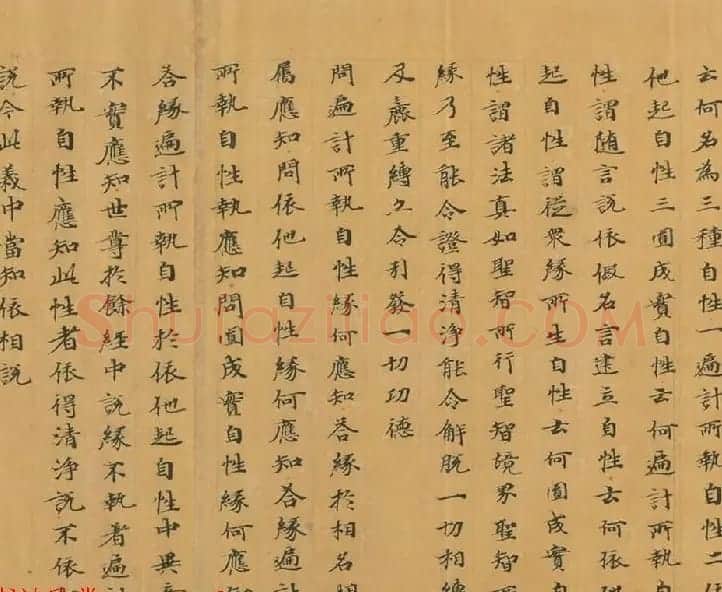 云何名為三種自性一遍計所執自性二依
他起自性三圓成實自性云何遍計所執自
性謂隨言說依假名言建立自性云何依他
起自性謂從眾緣所生自性云何圓成實自
性謂諸法真如聖智所行聖智境界聖智所
緣乃至能令證得清淨能令解脫一切相縛
及麁重縛亦令引發一切功德
問遍計所執自性緣何應知答緣於相名相
屬應知問依他起自性緣何應知答緣遍計
所執自性執應知問圓成實自性緣何應知
答緣遍計所執自性於依他起自性中畢竟
不實應知世尊於餘經中說緣不執著遍計
所執自性應知此性者依得清淨說不依
說今此義中當知依相說
Shufaziliao.com